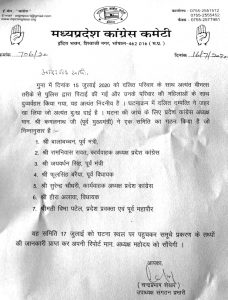 मध्यप्रदेश कांग्रेस कमेटी
इंदिरा भवन, शिवाजी नगर, भोपाल-462 016 (म.प्र.)
क्रमांक 706/20 दिनांक 16/7/2020
गुना में दिनांक 15 जुलाई 2020 को दलित परिवार के साथ अत्यंत वीभत्स
तरीके से पुलिस द्वारा पिटाई की गई और उनकी परिवार की महिलाओं के साथ
दुर्व्यवहार किया गया, यह अत्यंत निंदनीय है। घटनाक्रम में दलित दम्पति ने जहर
खा लिया जो अत्यंत दुःखद है। घटना की जांच के लिए प्रदेश कांग्रेस अध्यक्ष
मान. श्री कमलनाथ जी (पूर्व मुख्यमंत्री) ने एक समिति का गठन किया है जो
निम्नानुसार है:-
1. श्री बालाबच्चन, पूर्व मंत्री,
2. श्री रामनिवास रावत, कार्यवाहक अध्यक्ष प्रदेश कांग्रेस
3. श्री जयवर्धन सिंह, पूर्व मंत्री
4. श्री फूलसिंह बरैया, पूर्व विधायक
5. श्री सुरेन्द्र चौधरी, कार्यवाहक अध्यक्ष प्रदेश कांग्रेस
6. श्री हीरा अलावा, विधायक
7. श्रीमती विभा पटेल, प्रदेश प्रवक्ता एवं पूर्व महापौर
यह समिति 17 जुलाई को घटना स्थल पर पहुचकर समूचे प्रकरण के तथ्यों
की जानकारी प्राप्त कर अपनी रिपोर्ट मान. अध्यक्ष महोदय को सौंपेगी।
आपका,
(चन्द्रप्रभाष शेखर)
उपाध्यक्ष संगठन प्रभारी